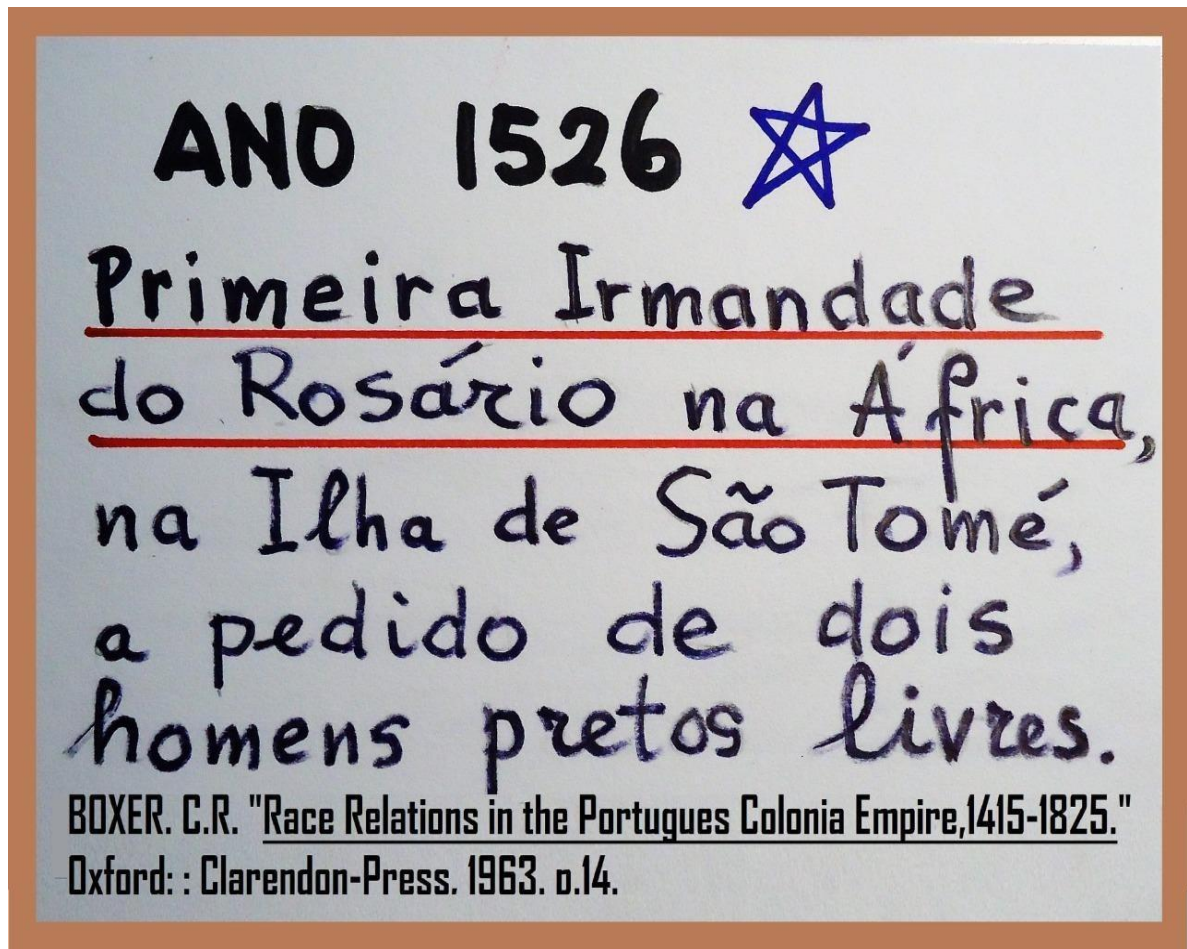 ANO 1526
Primeira Irmandade
do Rosário na África,
na Ilha de São Tomé,
a pedido de dois
homens pretos livres.
BOXER. C.R. "Race Relations in the Portugues Colonia Empire,1415-1825."
Oxford: : Clarendon-Press. 1963. p.14.